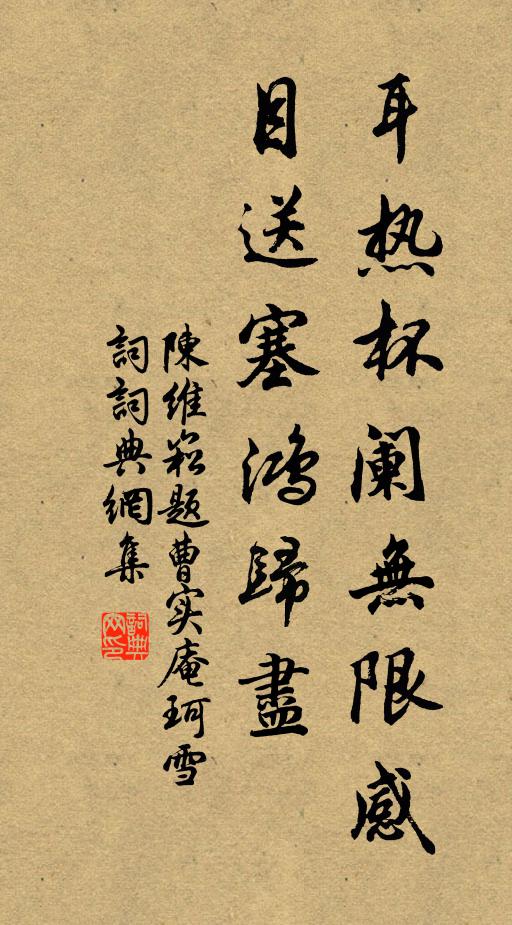 耳热杯阑無限感
目送塞鸿歸盡
陳維崧题曹实庵珂雪
詞詞典網集
詞典网印